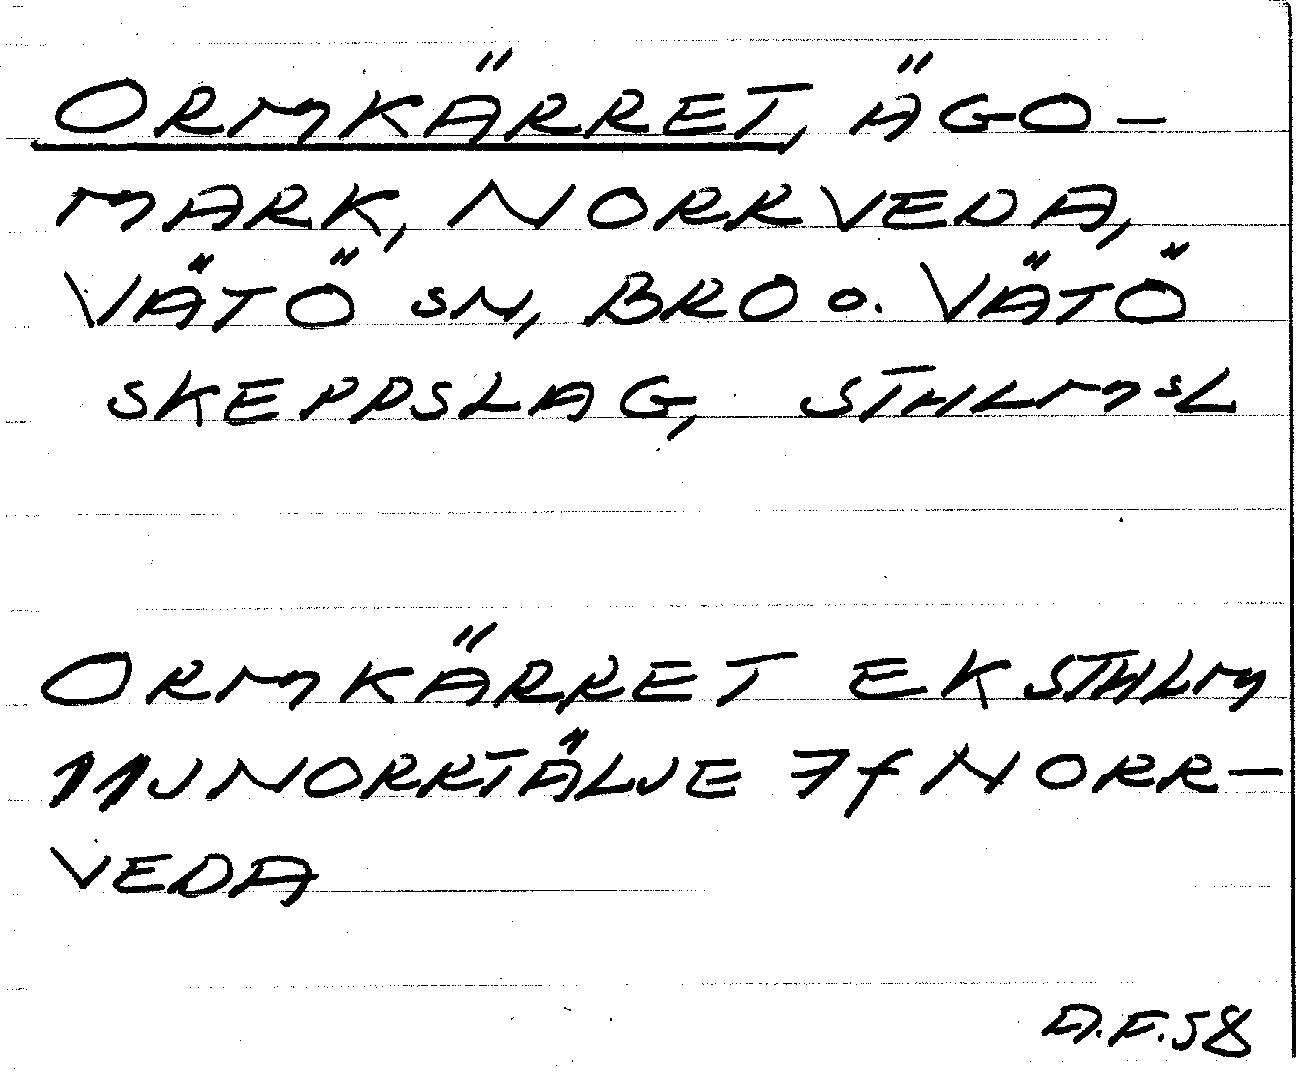 ORMKÄRRET, ÄGO-
MARK, NORRVEDA,
VÄTÖ SN, BRO O. VÄTÖ
SKEPPSLAG, STHLMSL
ORMKÄRRET EK STHLM
11J NORRTÄLJE 7f NORR-
VEDA
A.F.58